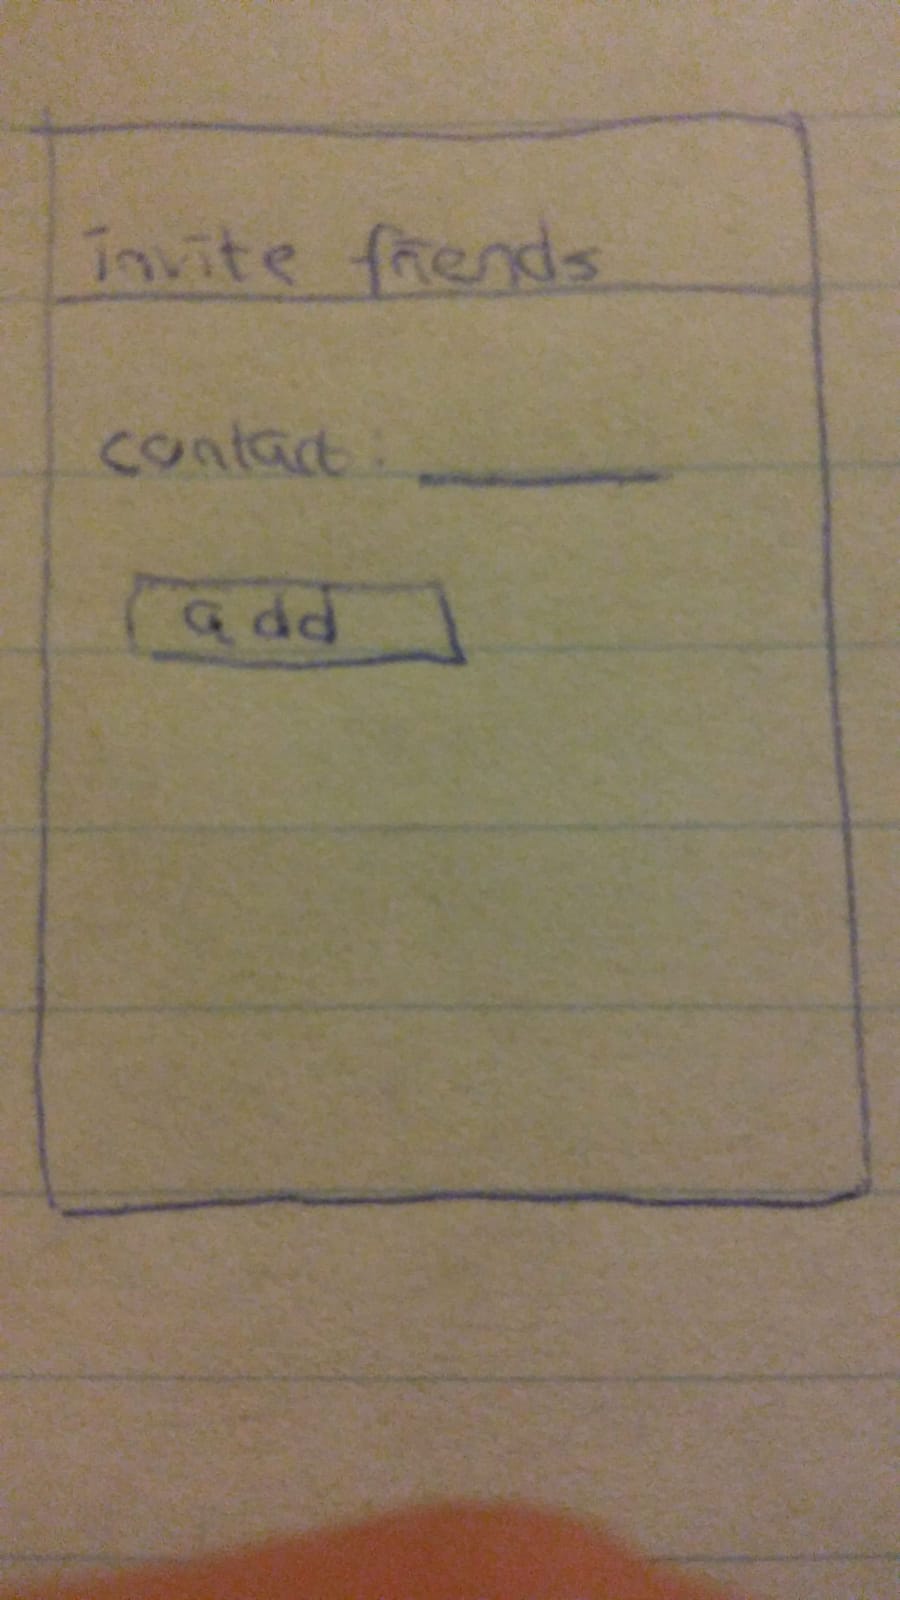 invite friends
contact:
add